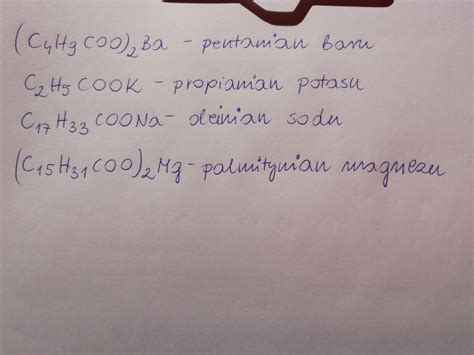 (C4H9COO)2Ba - pentanian baru
C2H5COOK - propianian potasu
C17H33COONa - oleinian sodu
(C15H31COO)2Mg - palmitynian magnezu